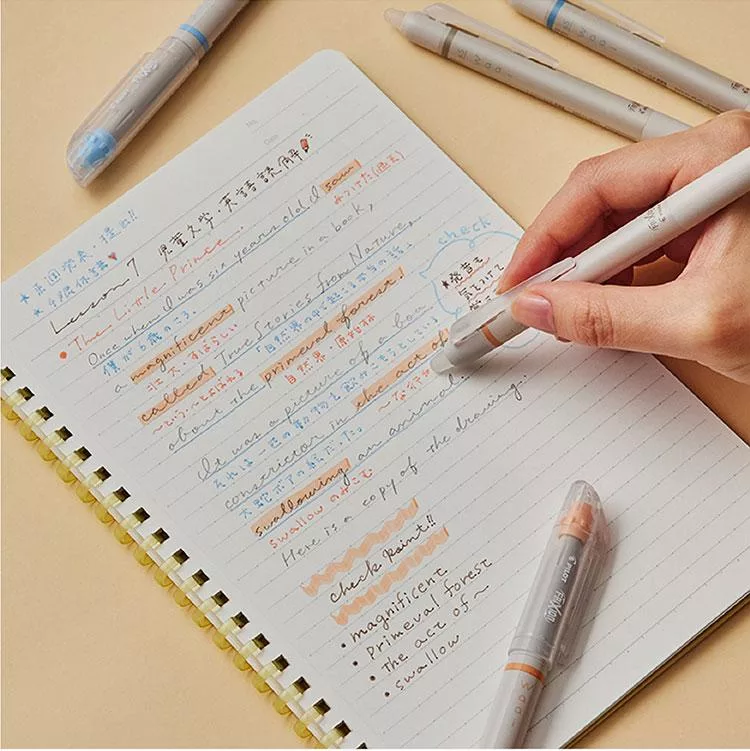 No.
Date
Lesson 7 児童文学・英語読解
• The Little Prince.
Once when I was six years old I saw
みつけた(過去)
僕が6歳のころ
a magnificent picture in a book,
壮大・すばらしい
called True Stories from Nature,
「自然界の中で起こる本当の話」
〜という、〜とよばれる
about the primeval forest
自然界 原始林
It was a picture of a boa
それは一匹の動物を飲みこもうとしている
constrictor in the act of
大蛇ボアの絵だった。
swallowing an animal.
swallow のみこむ
Here is a copy of the drawing.
check
★発音も
気をつけて
check point!!
• magnificent
• primeval forest
• the act of ~
• swallow
PILOT
FRIXION